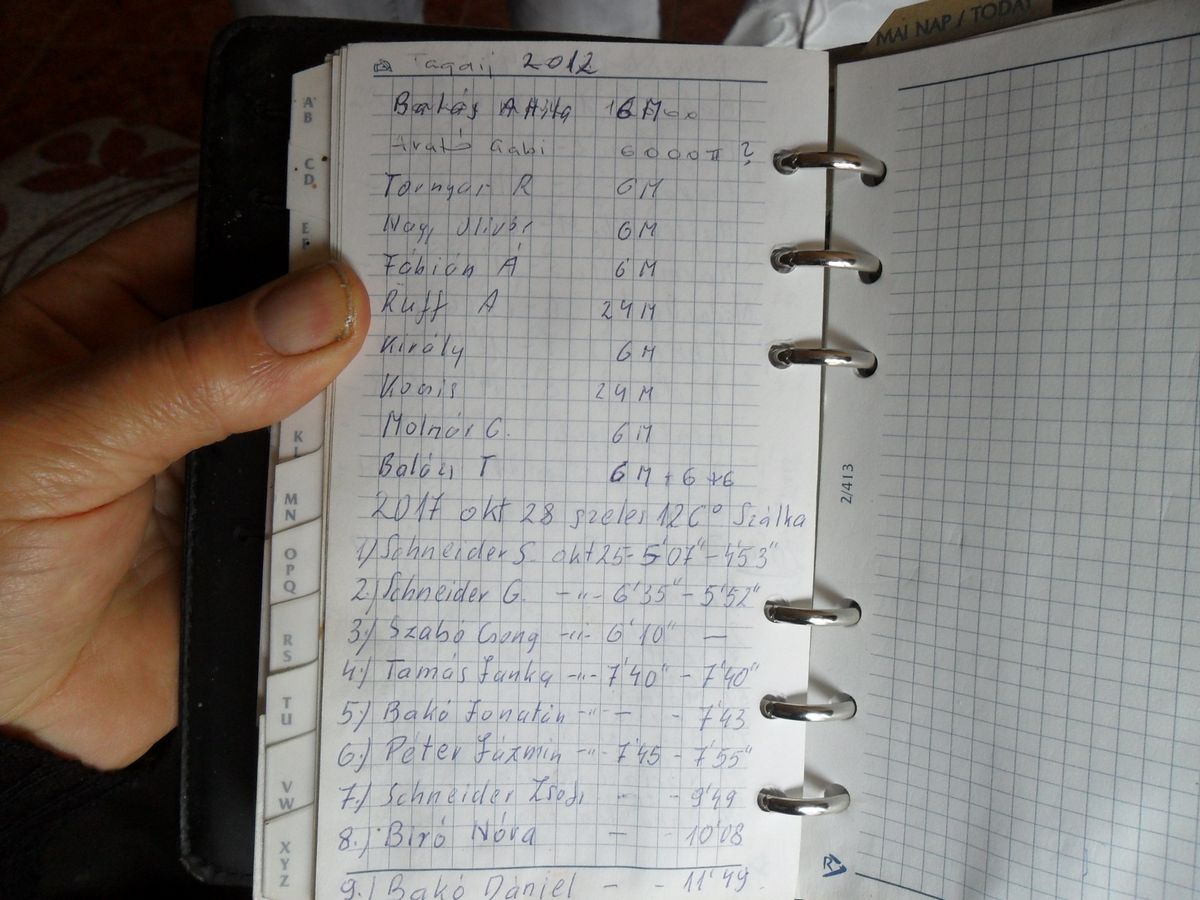 MAI NAP / TODAY
Tagdíj 2012
Attila 6M
Arató Gabi 6000 ?
Tornyai R 6M
Nagy Olivér 6M
Fábián Á 6M
Ruff A 24M
Király 6M
Kocsis 24M
Molnár G. 6M
Balázs T 6M + 6 + 6
2017 okt 28 szeles 12 C° Szálka
1.) Schneider S. okt 25 - 5'07" - 4'53"
2.) Schneider G. -"- 6'35" - 5'52"
3.) Szabó Csong -"- 6'10" —
4.) Tamás Janka -"- 7'40" - 7'40"
5.) Bakó Jonatán -"- — - 7'43
6.) Péter Jázmin -"- 7'45 - 7'55"
7.) Schneider Zsófi - - 9'49
8.) Biró Nóra — - 10'08
9.) Bakó Dániel - - 11'49.
AB
CD
KL
MN
OPQ
RS
TU
VW
XYZ
2/413